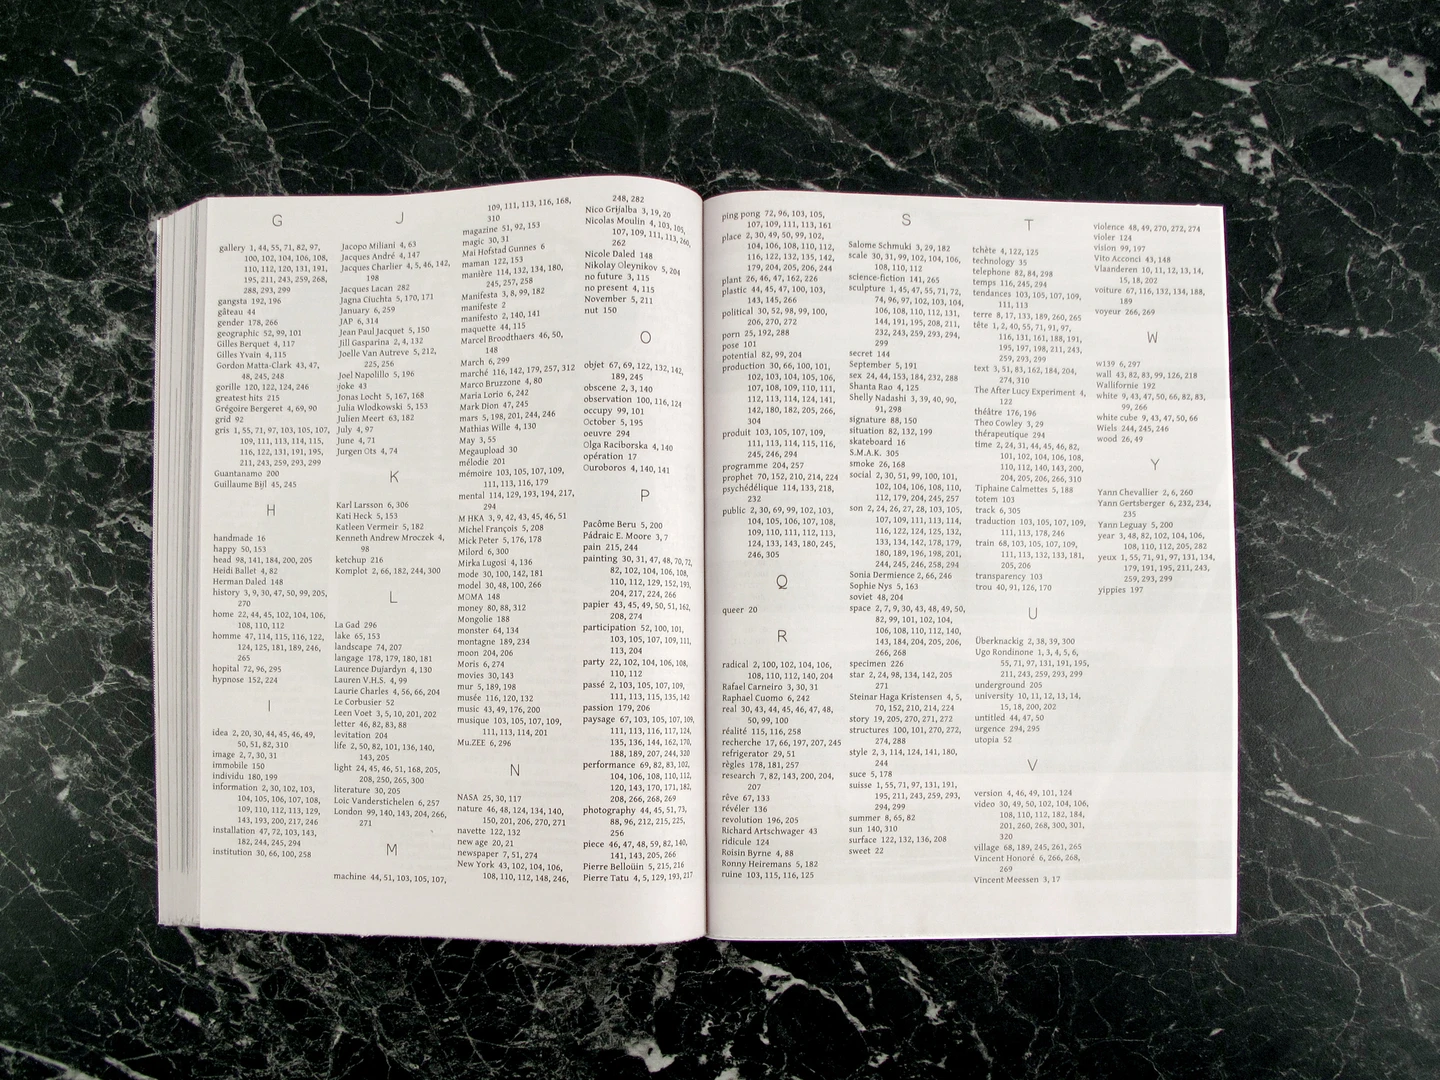 G
gallery 1, 44, 55, 71, 82, 97,
100, 102, 104, 106, 108,
110, 112, 120, 131, 191,
195, 211, 243, 259, 268,
288, 293, 299
gangsta 192, 196
gâteau 44
gender 178, 266
geographic 52, 99, 101
Gilles Berquet 4, 117
Gilles Yvain 4, 115
Gordon Matta-Clark 43, 47,
48, 245, 248
gorille 120, 122, 124, 246
greatest hits 215
Grégoire Bergeret 4, 69, 90
grid 92
gris 1, 55, 71, 97, 103, 105, 107,
109, 111, 113, 114, 115,
116, 122, 131, 191, 195,
211, 243, 259, 293, 299
Guantanamo 200
Guillaume Bijl 45, 245
H
handmade 16
happy 50, 153
head 98, 141, 184, 200, 205
Heidi Ballet 4, 82
Herman Daled 148
history 3, 9, 30, 47, 50, 99, 205,
270
home 22, 44, 45, 102, 104, 106,
108, 110, 112
homme 47, 114, 115, 116, 122,
124, 125, 181, 189, 246,
265
hopital 72, 96, 295
hypnose 152, 224
I
idea 2, 20, 30, 44, 45, 46, 49,
50, 51, 82, 310
image 2, 7, 30, 31
immobile 150
individu 180, 199
information 2, 30, 102, 103,
104, 105, 106, 107, 108,
109, 110, 112, 113, 129,
143, 193, 200, 217, 246
installation 47, 72, 103, 143,
182, 244, 245, 294
institution 30, 66, 100, 258
J
Jacopo Miliani 4, 63
Jacques André 4, 147
Jacques Charlier 4, 5, 46, 142,
198
Jacques Lacan 282
Jagna Ciuchta 5, 170, 171
January 6, 259
JAP 6, 314
Jean Paul Jacquet 5, 150
Jill Gasparina 2, 4, 132
Joelle Van Autreve 5, 212,
225, 256
Joel Napolillo 5, 196
joke 43
Jonas Locht 5, 167, 168
Julia Wlodkowski 5, 153
Julien Meert 63, 182
July 4, 97
June 4, 71
Jurgen Ots 4, 74
K
Karl Larsson 6, 306
Kati Heck 5, 153
Katleen Vermeir 5, 182
Kenneth Andrew Mroczek 4,
98
ketchup 216
Komplot 2, 66, 182, 244, 300
L
La Gad 296
lake 65, 153
landscape 74, 207
langage 178, 179, 180, 181
Laurence Dujardyn 4, 130
Lauren V.H.S. 4, 99
Laurie Charles 4, 56, 66, 204
Le Corbusier 52
Leen Voet 3, 5, 10, 201, 202
letter 46, 82, 83, 88
levitation 204
life 2, 50, 82, 101, 136, 140,
143, 205
light 24, 45, 46, 51, 168, 205,
208, 250, 265, 300
literature 30, 205
Loic Vanderstichelen 6, 257
London 99, 140, 143, 204, 266,
271
M
machine 44, 51, 103, 105, 107,
109, 111, 113, 116, 168,
310
magazine 51, 92, 153
magic 30, 31
Mai Hofstad Gunnes 6
maman 122, 153
manière 114, 132, 134, 180,
245, 257, 258
Manifesta 3, 8, 99, 182
manifeste 2
manifesto 2, 140, 141
maquette 44, 115
Marcel Broodthaers 46, 50,
148
March 6, 299
marché 116, 142, 179, 257, 312
Marco Bruzzone 4, 80
Maria Lorio 6, 242
Mark Dion 47, 245
mars 5, 198, 201, 244, 246
Mathias Wille 4, 130
May 3, 55
Megaupload 30
mélodie 201
mémoire 103, 105, 107, 109,
111, 113, 116, 179
mental 114, 129, 193, 194, 217,
294
M HKA 3, 9, 42, 43, 45, 46, 51
Michel François 5, 208
Mick Peter 5, 176, 178
Milord 6, 300
Mirka Lugosi 4, 136
mode 30, 100, 142, 181
model 30, 48, 100, 266
MOMA 148
money 80, 88, 312
Mongolie 188
monster 64, 134
montagne 189, 234
moon 204, 206
Moris 6, 274
movies 30, 143
mur 5, 189, 198
musée 116, 120, 132
music 43, 49, 176, 200
musique 103, 105, 107, 109,
111, 113, 114, 201
Mu.ZEE 6, 296
N
NASA 25, 30, 117
nature 46, 48, 124, 134, 140,
150, 201, 206, 270, 271
navette 122, 132
new age 20, 21
newspaper 7, 51, 274
New York 43, 102, 104, 106,
108, 110, 112, 148, 246,
248, 282
Nico Grijalba 3, 19, 20
Nicolas Moulin 4, 103, 105,
107, 109, 111, 113, 260,
262
Nicole Daled 148
Nikolay Oleynikov 5, 204
no future 3, 115
no present 4, 115
November 5, 211
nut 150
O
objet 67, 69, 122, 132, 142,
189, 245
obscene 2, 3, 140
observation 100, 116, 124
occupy 99, 101
October 5, 195
oeuvre 294
Olga Raciborska 4, 140
opération 17
Ouroboros 4, 140, 141
P
Pacôme Beru 5, 200
Pádraic E. Moore 3, 7
pain 215, 244
painting 30, 31, 47, 48, 70, 72,
82, 102, 104, 106, 108,
110, 112, 129, 152, 193,
204, 217, 224, 266
papier 43, 45, 49, 50, 51, 162,
208, 274
participation 52, 100, 101,
103, 105, 107, 109, 111,
113, 204
party 22, 102, 104, 106, 108,
110, 112
passé 2, 103, 105, 107, 109,
111, 113, 115, 135, 142
passion 179, 206
paysage 67, 103, 105, 107, 109,
111, 113, 116, 117, 124,
135, 136, 144, 162, 170,
188, 189, 207, 244, 320
performance 69, 82, 83, 102,
104, 106, 108, 110, 112,
120, 143, 170, 171, 182,
208, 266, 268, 269
photography 44, 45, 51, 73,
88, 96, 212, 215, 225,
256
piece 46, 47, 48, 59, 82, 140,
141, 143, 205, 266
Pierre Belloüin 5, 215, 216
Pierre Tatu 4, 5, 129, 193, 217
ping pong 72, 96, 103, 105,
107, 109, 111, 113, 161
place 2, 30, 49, 50, 99, 102,
104, 106, 108, 110, 112,
116, 122, 132, 135, 142,
179, 204, 205, 206, 244
plant 26, 46, 47, 162, 226
plastic 44, 45, 47, 100, 103,
143, 145, 266
political 30, 52, 98, 99, 100,
206, 270, 272
porn 25, 192, 288
pose 101
potential 82, 99, 204
production 30, 66, 100, 101,
102, 103, 104, 105, 106,
107, 108, 109, 110, 111,
112, 113, 114, 124, 141,
142, 180, 182, 205, 266,
304
produit 103, 105, 107, 109,
111, 113, 114, 115, 116,
245, 246, 294
programme 204, 257
prophet 70, 152, 210, 214, 224
psychédélique 114, 133, 218,
232
public 2, 30, 69, 99, 102, 103,
104, 105, 106, 107, 108,
109, 110, 111, 112, 113,
124, 133, 143, 180, 245,
246, 305
Q
queer 20
R
radical 2, 100, 102, 104, 106,
108, 110, 112, 140, 204
Rafael Carneiro 3, 30, 31
Raphael Cuomo 6, 242
real 30, 43, 44, 45, 46, 47, 48,
50, 99, 100
réalité 115, 116, 258
recherche 17, 66, 197, 207, 245
refrigerator 29, 51
règles 178, 181, 257
research 7, 82, 143, 200, 204,
207
rêve 67, 133
révéler 136
revolution 196, 205
Richard Artschwager 43
ridicule 124
Roisin Byrne 4, 88
Ronny Heiremans 5, 182
ruine 103, 115, 116, 125
S
Salome Schmuki 3, 29, 182
scale 30, 31, 99, 102, 104, 106,
108, 110, 112
science-fiction 141, 265
sculpture 1, 45, 47, 55, 71, 72,
74, 96, 97, 102, 103, 104,
106, 108, 110, 112, 131,
144, 191, 195, 208, 211,
232, 243, 259, 293, 294,
299
secret 144
September 5, 191
sex 24, 44, 153, 184, 232, 288
Shanta Rao 4, 125
Shelly Nadashi 3, 39, 40, 90,
91, 298
signature 88, 150
situation 82, 132, 199
skateboard 16
S.M.A.K. 305
smoke 26, 168
social 2, 30, 51, 99, 100, 101,
102, 104, 106, 108, 110,
112, 179, 204, 245, 257
son 2, 24, 26, 27, 28, 103, 105,
107, 109, 111, 113, 114,
116, 122, 124, 125, 132,
133, 134, 142, 178, 179,
180, 189, 196, 198, 201,
244, 245, 246, 258, 294
Sonia Dermience 2, 66, 246
Sophie Nys 5, 163
soviet 48, 204
space 2, 7, 9, 30, 43, 48, 49, 50,
82, 99, 101, 102, 104,
106, 108, 110, 112, 140,
143, 184, 204, 205, 206,
266, 268
specimen 226
star 2, 24, 98, 134, 142, 205
271
Steinar Haga Kristensen 4, 5,
70, 152, 210, 214, 224
story 19, 205, 270, 271, 272
structures 100, 101, 270, 272,
274, 288
style 2, 3, 114, 124, 141, 180,
244
suce 5, 178
suisse 1, 55, 71, 97, 131, 191,
195, 211, 243, 259, 293,
294, 299
summer 8, 65, 82
sun 140, 310
surface 122, 132, 136, 208
sweet 22
T
tchète 4, 122, 125
technology 35
telephone 82, 84, 298
temps 116, 245, 294
tendances 103, 105, 107, 109,
111, 113
terre 8, 17, 133, 189, 260, 265
tête 1, 2, 40, 55, 71, 91, 97,
116, 131, 161, 188, 191,
195, 197, 198, 211, 243,
259, 293, 299
text 3, 51, 83, 162, 184, 204,
274, 310
The After Lucy Experiment 4,
122
théâtre 176, 196
Theo Cowley 3, 29
thérapeutique 294
time 2, 24, 31, 44, 45, 46, 82,
101, 102, 104, 106, 108,
110, 112, 140, 143, 200,
204, 205, 206, 266, 310
Tiphaine Calmettes 5, 188
totem 103
track 6, 305
traduction 103, 105, 107, 109,
111, 113, 178, 246
train 68, 103, 105, 107, 109,
111, 113, 132, 133, 181,
205, 206
transparency 103
trou 40, 91, 126, 170
U
Überknackig 2, 38, 39, 300
Ugo Rondinone 1, 3, 4, 5, 6,
55, 71, 97, 131, 191, 195,
211, 243, 259, 293, 299
underground 205
university 10, 11, 12, 13, 14,
15, 18, 200, 202
untitled 44, 47, 50
urgence 294, 295
utopia 52
V
version 4, 46, 49, 101, 124
video 30, 49, 50, 102, 104, 106,
108, 110, 112, 182, 184,
201, 260, 268, 300, 301,
320
village 68, 189, 245, 261, 265
Vincent Honoré 6, 266, 268,
269
Vincent Meessen 3, 17
violence 48, 49, 270, 272, 274
violer 124
vision 99, 197
Vito Acconci 43, 148
Vlaanderen 10, 11, 12, 13, 14,
15, 18, 202
voiture 67, 116, 132, 134, 188,
189
voyeur 266, 269
W
w139 6, 297
wall 43, 82, 83, 99, 126, 218
Wallifornie 192
white 9, 43, 47, 50, 66, 82, 83,
99, 266
white cube 9, 43, 47, 50, 66
Wiels 244, 245, 246
wood 26, 49
Y
Yann Chevallier 2, 6, 260
Yann Gertsberger 6, 232, 234,
235
Yann Leguay 5, 200
year 3, 48, 82, 102, 104, 106,
108, 110, 112, 205, 282
yeux 1, 55, 71, 91, 97, 131, 134,
179, 191, 195, 211, 243,
259, 293, 299
yippies 197